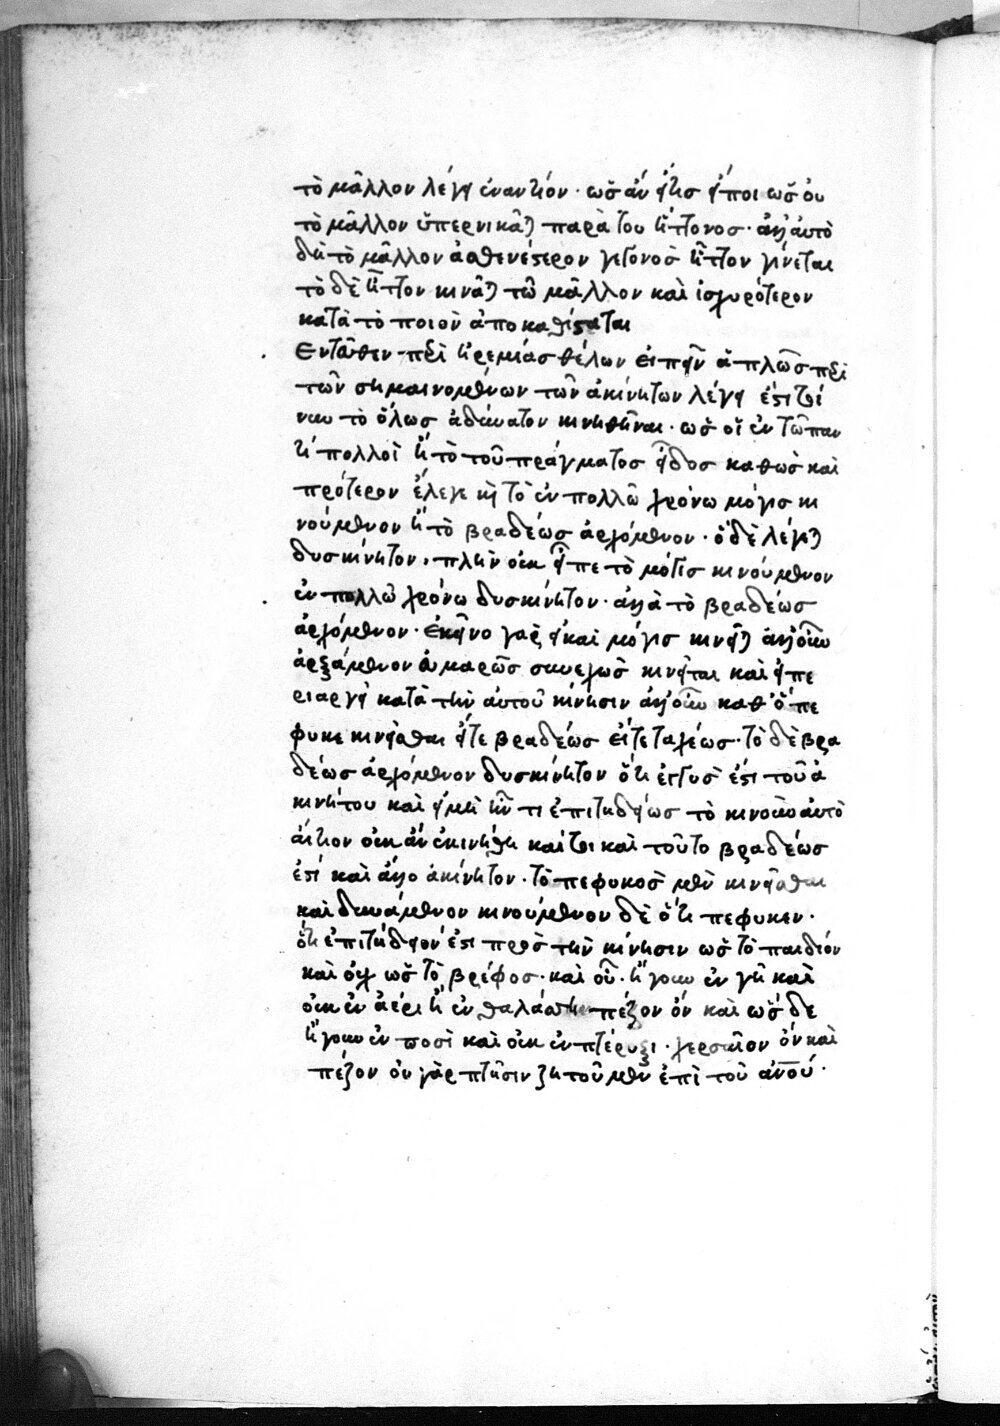 τὸ μᾶλλον λέγει ἐναντίον· ὡς ἄν εἴτις εἴποι ὡς οὐ
τὸ μᾶλλον ὕπερνικᾶται παρὰ του ἥττονος· ἀλλ' αὐτὸ
δὴ τὸ μᾶλλον ἀσθενέστερον γεγονὸς ἧττον γίνεται
τὸ δὲ ἧττον κινᾶται τῶ μᾶλλον καὶ ἰσχυρότερον
κατὰ τὸ ποιὸν ἀποκαθίσταται
Ενταῦθεν περὶ ἠρεμίας θέλων εἰπεῖν ἁπλῶς περὶ
τῶν σημαινομένων τῶν ἀκινήτων λέγει ἐστι τοί
νυν τὸ ὅλως ἀδύνατον κινηθῆναι· ὡς οἵ ἐν τῶ παν
τί πολλοὶ ἢ τὸ τοῦ πράγματος εἶδος καθὼς καὶ
πρότερον ἔλεγε καὶ τὸ ἐν πολλῶ χρόνω μόγις κι
νούμενον ἢ τὸ βραδέως ἀρχόμενον· ὃ δὲ λέγεται
δυσκίνητον, πλὴν οὐκ εἶπε τὸ μόγις κινούμενον
ἐν πολλῶ χρόνω δυσκίνητον· ἀλλὰ τὸ βραδέως
ἀρχόμενον· ἐκεῖνο γὰρ εἰ καὶ μόγις κινεῖται ἀλλ' οὖν
ἀρξάμενον συνεχῶς κινεῖται καὶ εἴπε
ριαργεῖ κατὰ τὴν αὐτοῦ κίνησιν ἀλλ' οὖν καθ' ὃ πέ
φυκε κινεῖσθαι εἴτε βραδέως εἴτε ταχέως· τὸ δὲ βρα
δέως ἀρχόμενον δυσκίνητον ὅτι ἐγγυς ἐστι τοῦ ἀ
κινήτου καὶ εἰ μὴ ἦν τι ἐπιτηδείως τὸ κινοῦν αὐτὸ
αἴτιον οὐκ ἄν ἐκινήθη καίτοι καὶ τοῦτο βραδέως
ἐστί καὶ ἄλλο ἀκίνητον· τὸ πεφυκος μὲν κινεῖσθαι
καὶ δυνάμενον κινούμενον δὲ ὅτι πεφυκεν·
ὅτι ἐπιτήδειον ἐστι προς τὴν κίνησιν ὡς τὸ παιδίον
καὶ οὐχ ὡς τὸ βρέφος· καὶ οὗ· ἤγουν ἐν γῆ καὶ
οὐκ ἐν ἀέρι ἢ ἐν θαλάσση πέζον ὄν καὶ ὡς δὲ
ἤγουν ἐν ποσὶ καὶ οὐκ ἐν πτέρυξι· χερσαῖον ὄν καὶ
πέζον οὐ γὰρ πτῆσιν ζητοῦμεν ἐπὶ τοῦ ἀνου·